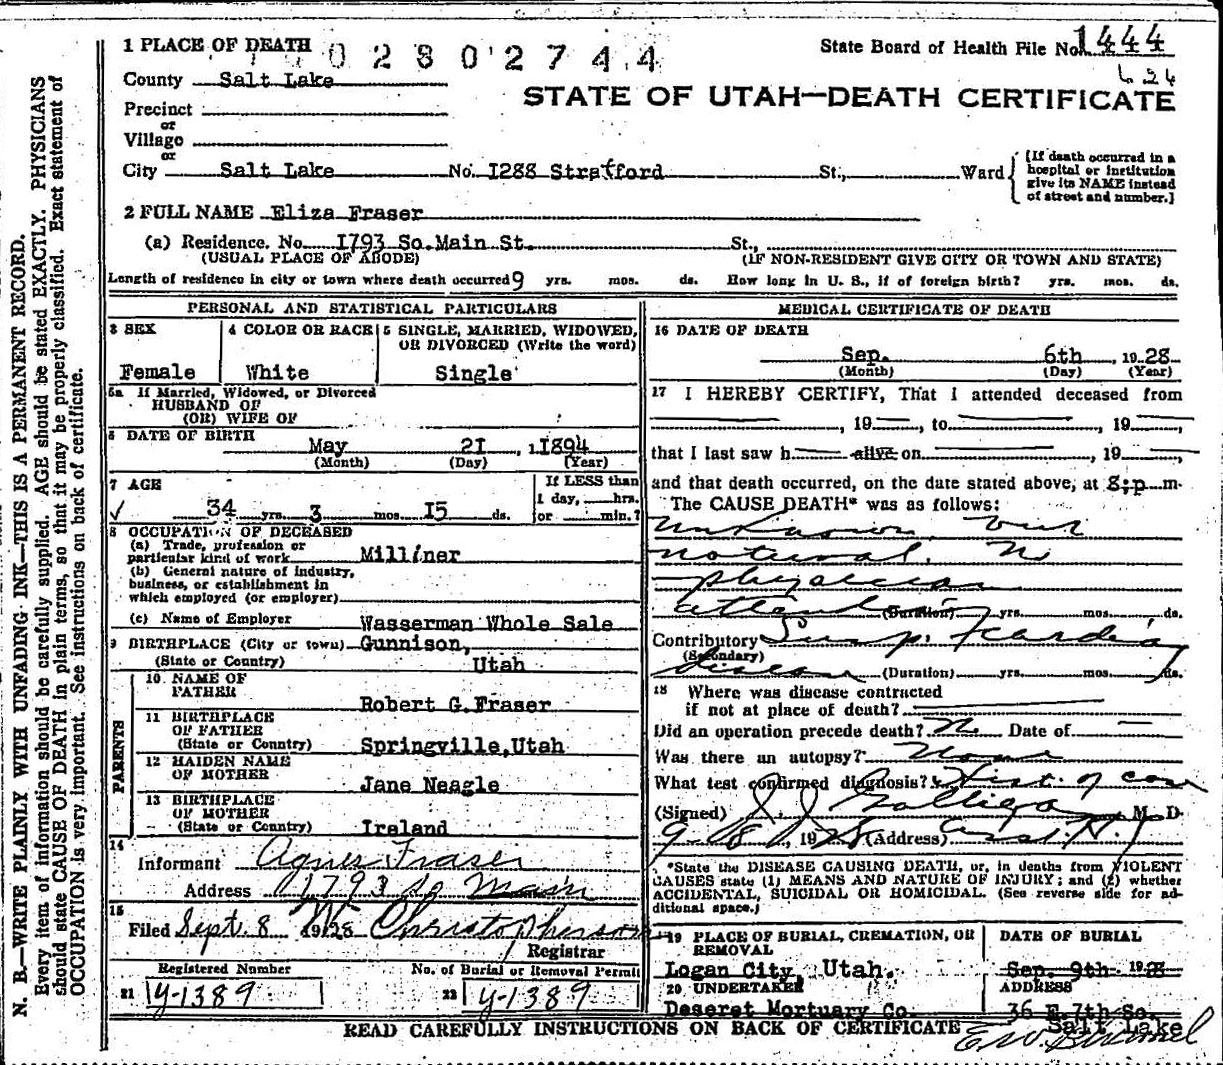 N. B.—WRITE PLAINLY WITH UNFADING INK—THIS IS A PERMANENT RECORD.
Every item of information should be carefully supplied. AGE should be stated EXACTLY. PHYSICIANS
should state CAUSE OF DEATH in plain terms, so that it may be properly classified. Exact statement of
OCCUPATION is very important. See instructions on back of certificate.
1 PLACE OF DEATH 02802744 State Board of Health File No. 1444
County Salt Lake
STATE OF UTAH—DEATH CERTIFICATE
Precinct
or
Village
or
City Salt Lake No. I288 Stratford St., Ward
(If death occurred in a
hospital or institution
give its NAME instead
of street and number.)
2 FULL NAME Eliza Fraser
(a) Residence. No. I793 So. Main St. St.,
(USUAL PLACE OF ABODE) (IF NON-RESIDENT GIVE CITY OR TOWN AND STATE)
Length of residence in city or town where death occurred 9 yrs. mos. ds. How long in U. S., if of foreign birth? yrs. mos. ds.
PERSONAL AND STATISTICAL PARTICULARS
3 SEX
Female
4 COLOR OR RACE
White
5 SINGLE, MARRIED, WIDOWED,
OR DIVORCED (Write the word)
Single
5a If Married, Widowed, or Divorced
HUSBAND OF
(OR) WIFE OF
6 DATE OF BIRTH
May 2I , 1894
(Month) (Day) (Year)
7 AGE
34 yrs. 3 mos. I5 ds.
If LESS than
1 day, hrs.
or min.?
8 OCCUPATION OF DECEASED
(a) Trade, profession or
particular kind of work Milliner
(b) General nature of industry,
business, or establishment in
which employed (or employer)
(c) Name of Employer Wasserman Whole Sale
9 BIRTHPLACE (City or town) Gunnison,
(State or Country) Utah
PARENTS
10 NAME OF
FATHER
Robert G. Fraser
11 BIRTHPLACE
OF FATHER
(State or Country) Springville, Utah
12 MAIDEN NAME
OF MOTHER
Jane Neagle
13 BIRTHPLACE
OF MOTHER
(State or Country) Ireland
14
Informant Agnes Fraser
Address 1793 So Main
15
Filed Sept. 8 1928 Christopherson
Registrar
Registered Number
21 Y-1389
No. of Burial or Removal Permit
22 Y-1389
MEDICAL CERTIFICATE OF DEATH
16 DATE OF DEATH
Sep. 6th , 1928
(Month) (Day) (Year)
17 I HEREBY CERTIFY, That I attended deceased from
, 19 , to , 19 ,
that I last saw h alive on , 19 ,
and that death occurred, on the date stated above, at 8;p m.
The CAUSE DEATH* was as follows:
Unknown but
natural. No
physician
attend (Duration) yrs. mos. ds.
Contributory Susp. Cardia
(Secondary)
disease (Duration) yrs. mos. ds.
18 Where was disease contracted
if not at place of death?
Did an operation precede death? No Date of
Was there an autopsy? None
What test confirmed diagnosis? Hist. of case
(Signed) J J Galligan, M. D.
9-8, 1928 (Address) Asst. H.
*State the DISEASE CAUSING DEATH, or, in deaths from VIOLENT
CAUSES state (1) MEANS AND NATURE OF INJURY; and (2) whether
ACCIDENTAL, SUICIDAL OR HOMICIDAL. (See reverse side for ad-
ditional space.)
19 PLACE OF BURIAL, CREMATION, OR
REMOVAL
Logan City, Utah.
DATE OF BURIAL
Sep. 9th 1928
20 UNDERTAKER
Deseret Mortuary Co.
ADDRESS
36 E. 7th So.
Salt Lake
READ CAREFULLY INSTRUCTIONS ON BACK OF CERTIFICATE